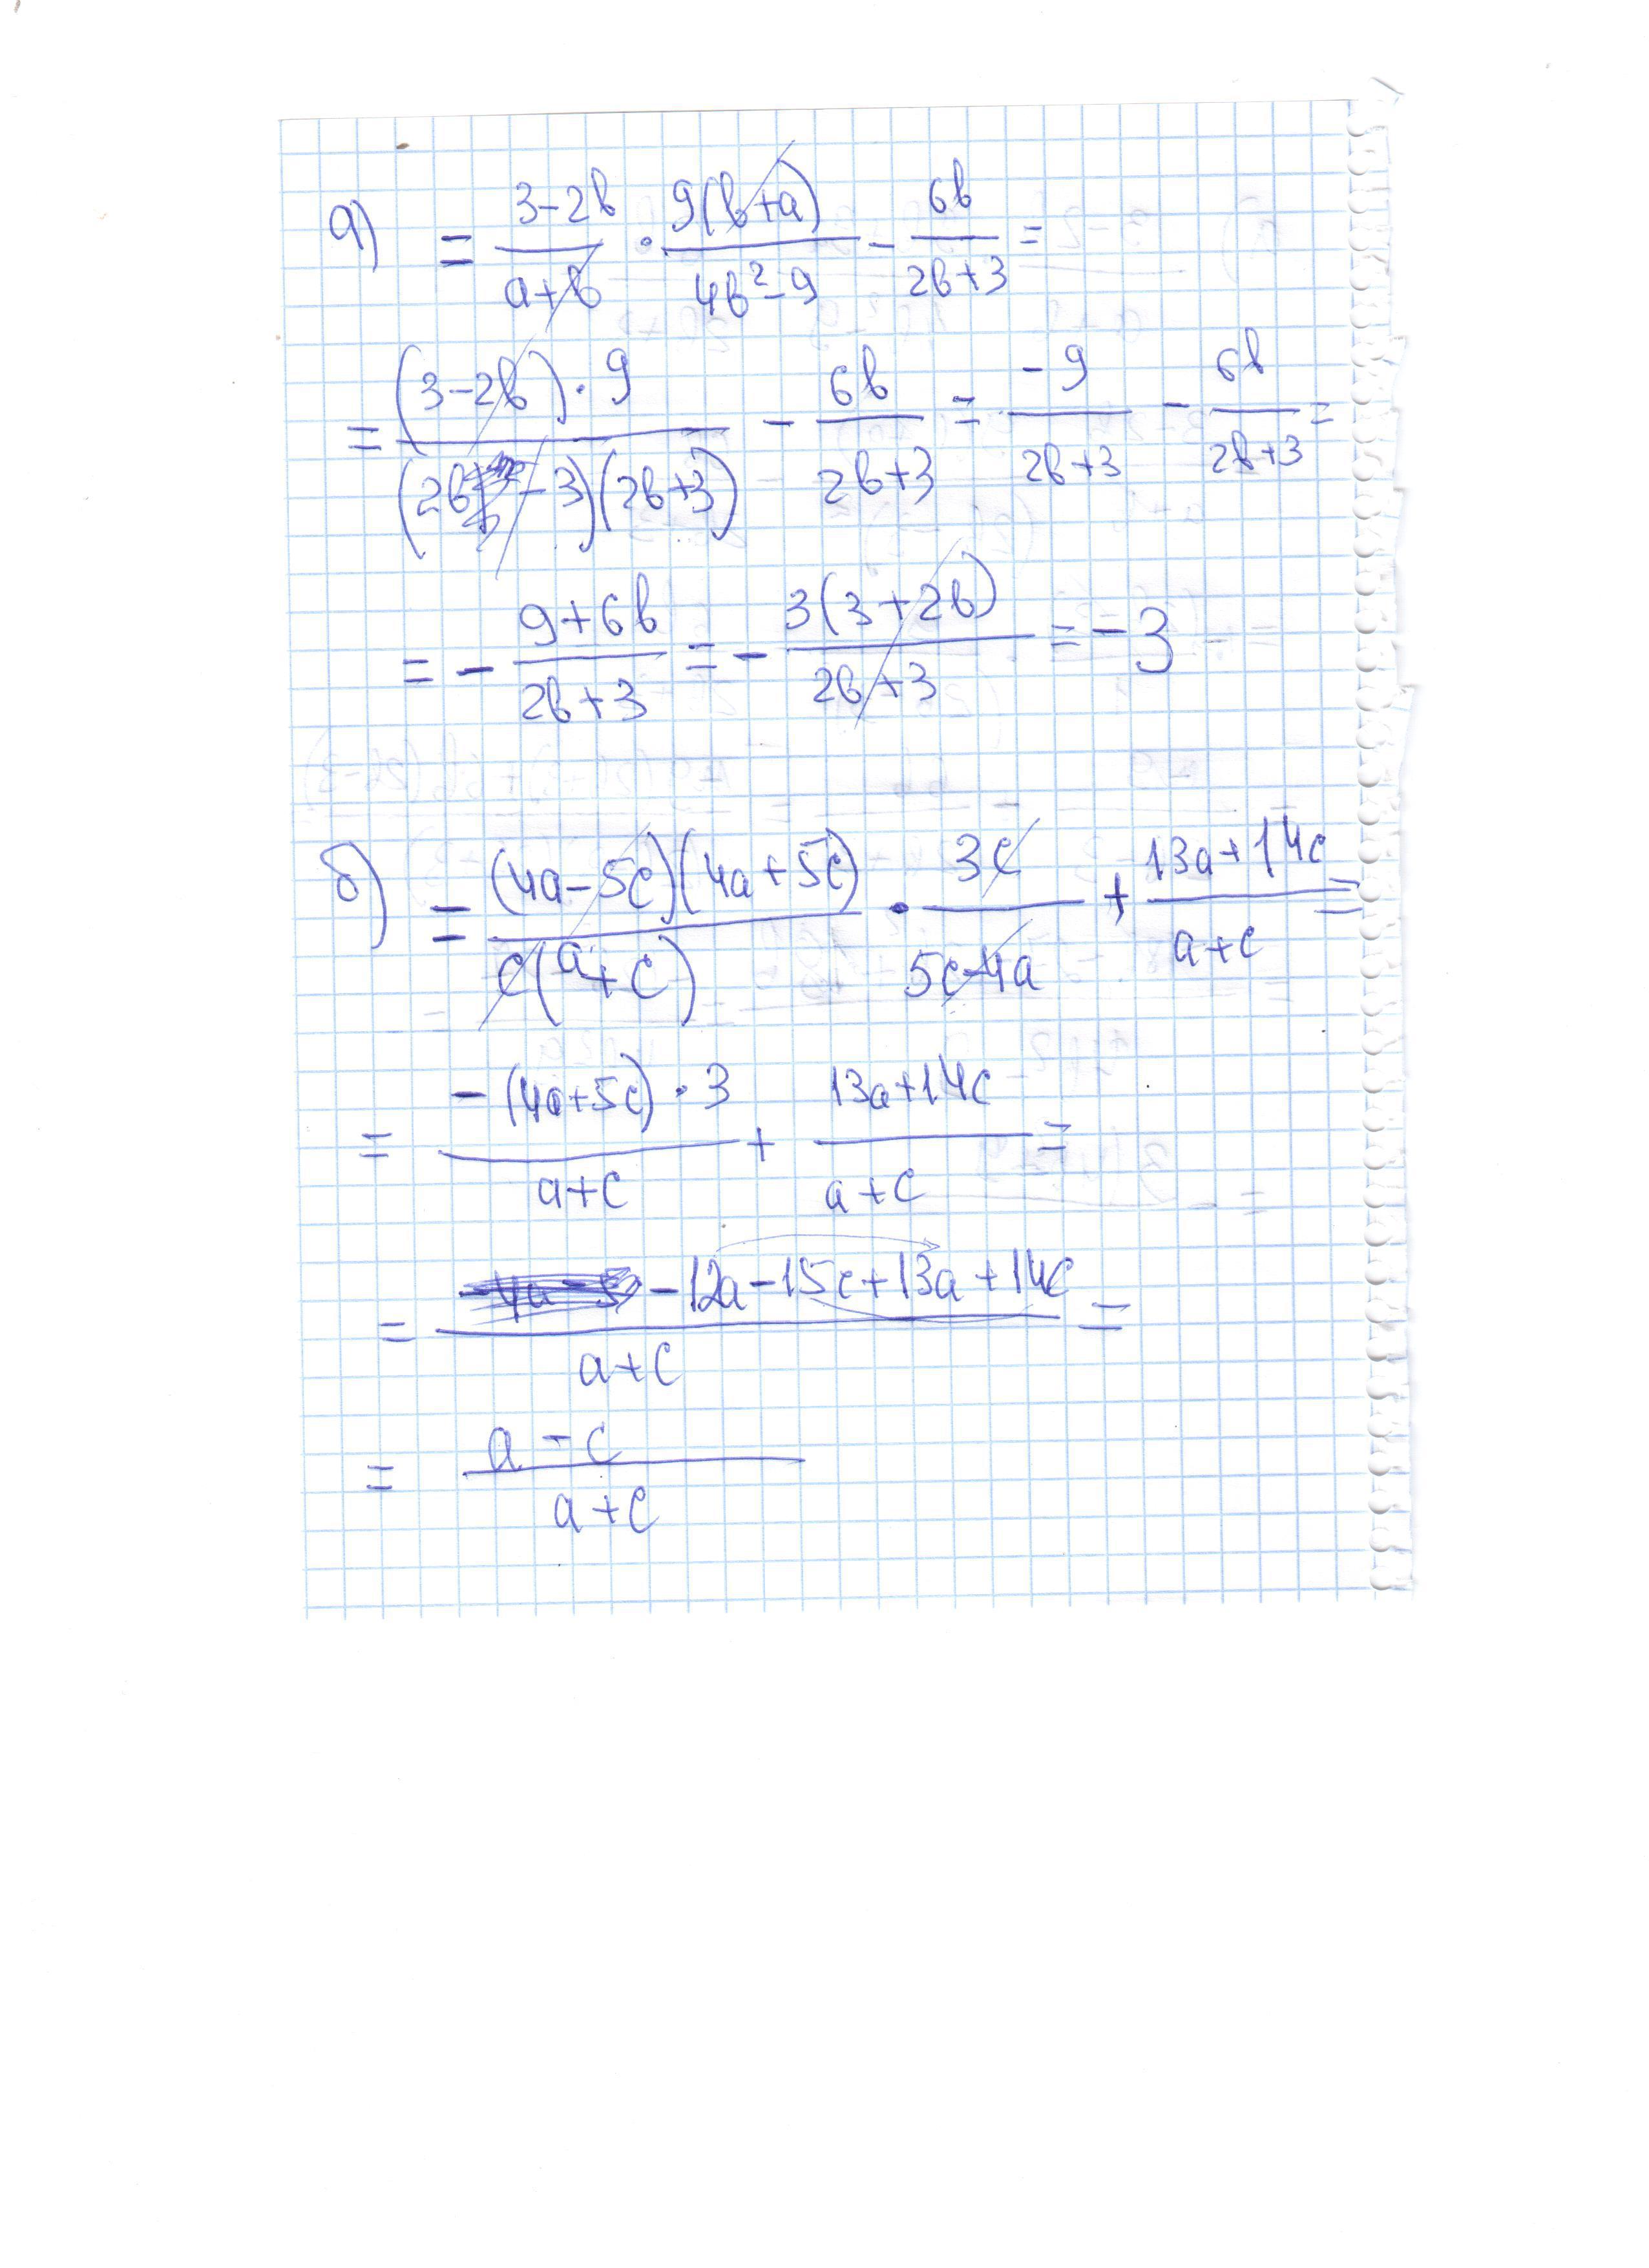 а) = (3-2b)/(a+b) · 9(b+a)/(4b²-9) - 6b/(2b+3) =
= (3-2b)·9/((2b-3)(2b+3)) - 6b/(2b+3) = -9/(2b+3) - 6b/(2b+3) =
= - (9+6b)/(2b+3) = - 3(3+2b)/(2b+3) = -3
б) = (4a-5c)(4a+5c)/(c(a+c)) · 3c/(5c-4a) + (13a+14c)/(a+c) =
= -(4a+5c)·3/(a+c) + (13a+14c)/(a+c) =
= (-12a-15c+13a+14c)/(a+c) =
= (a-c)/(a+c)